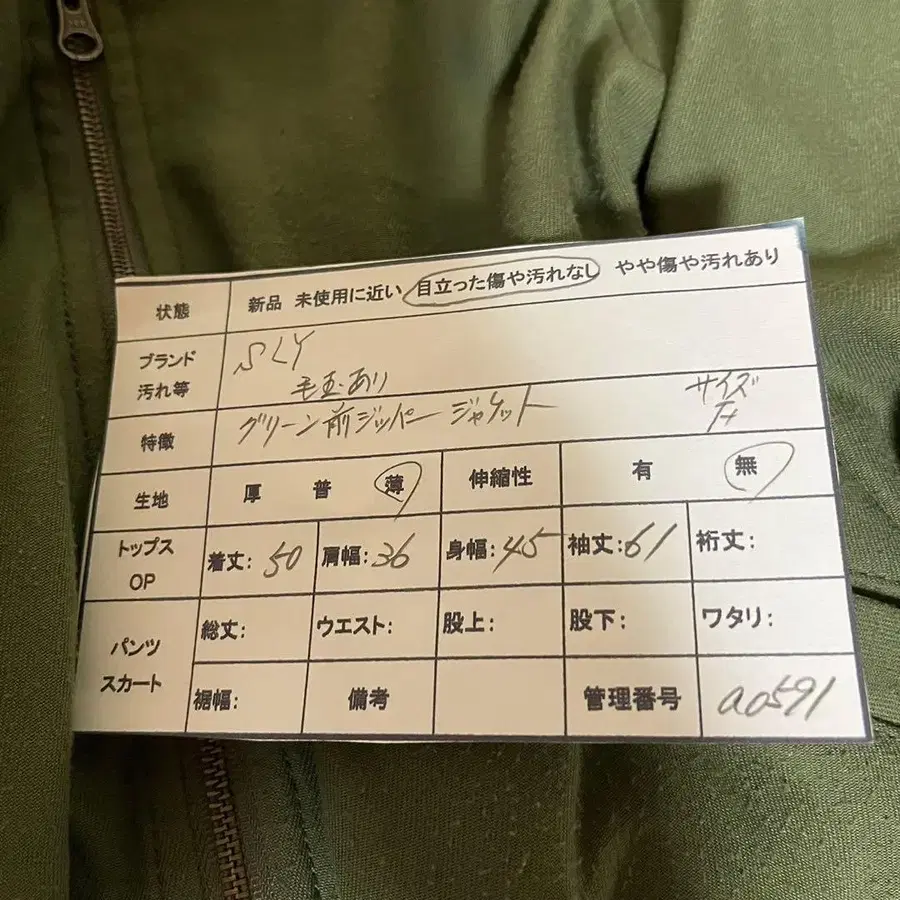 状態 新品 未使用に近い 目立った傷や汚れなし やや傷や汚れあり
ブランド SLY
汚れ等 毛玉あり サイズ
特徴 グリーン前ジッパー ジャケット F
生地 厚 普 薄 伸縮性 有 無
トップス OP 着丈: 50 肩幅: 36 身幅: 45 袖丈: 61 裄丈:
パンツ スカート 総丈: ウエスト: 股上: 股下: ワタリ:
裾幅: 備考 管理番号 a0591